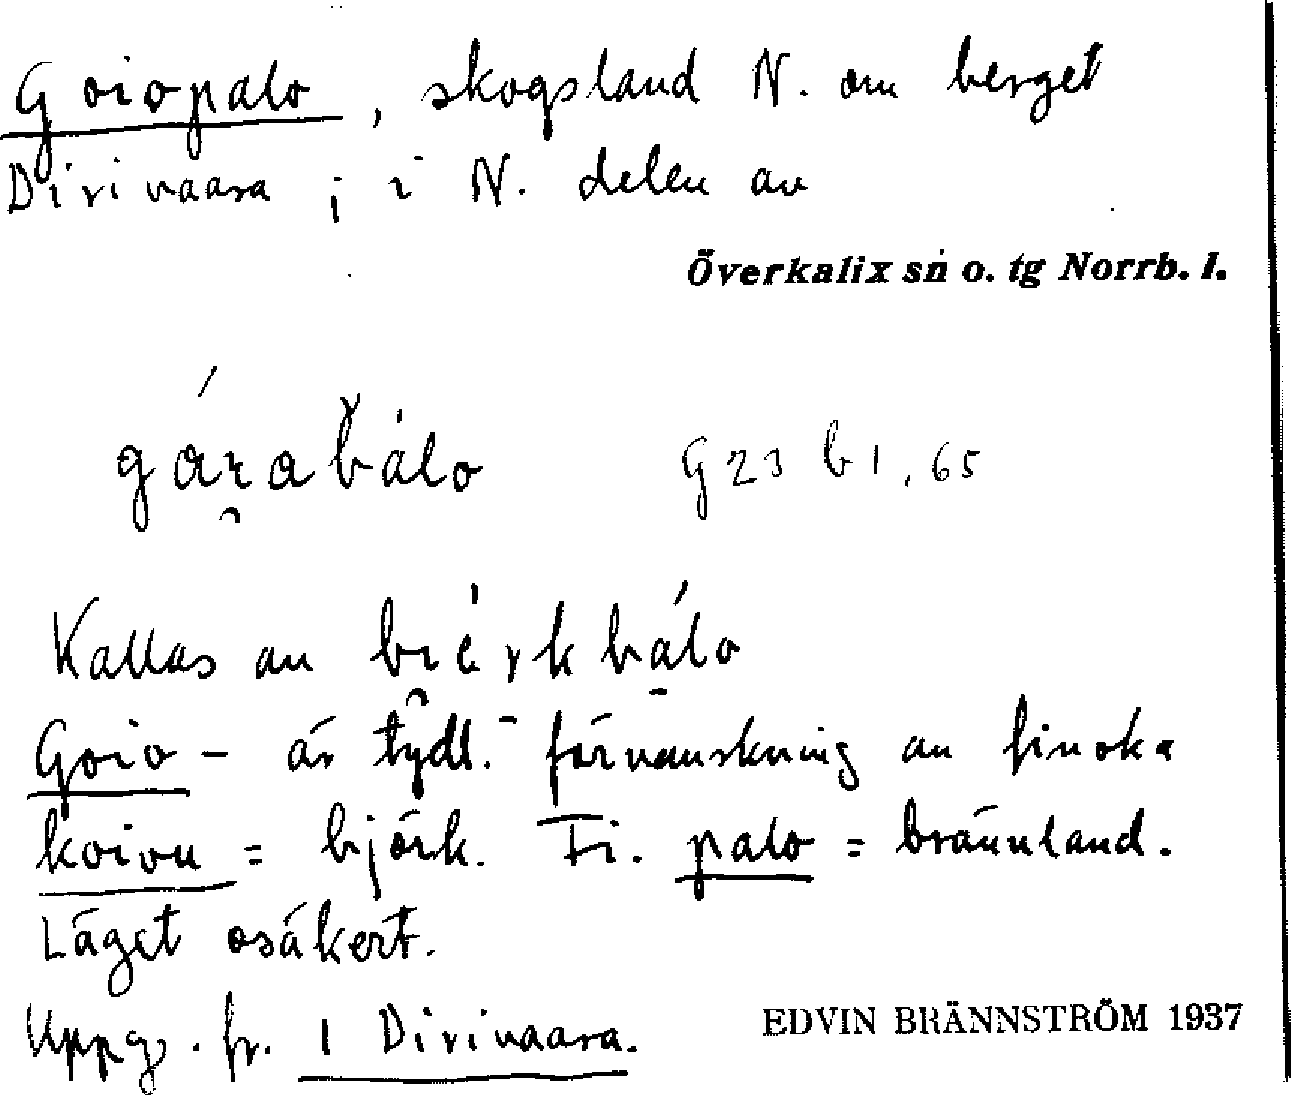 Goiopalo, skogsland N. om berget
Divivaara ; i N. delen av
Överkalix sn o. tg Norrb. l.
G 23 b 1, 65
Kallas av
Goio - är tydl. förvanskning av finska
koivu = björk. Fi. palo = brännland.
Läget osäkert.
Uppg. fr. 1 Divivaara.
EDVIN BRÄNNSTRÖM 1937